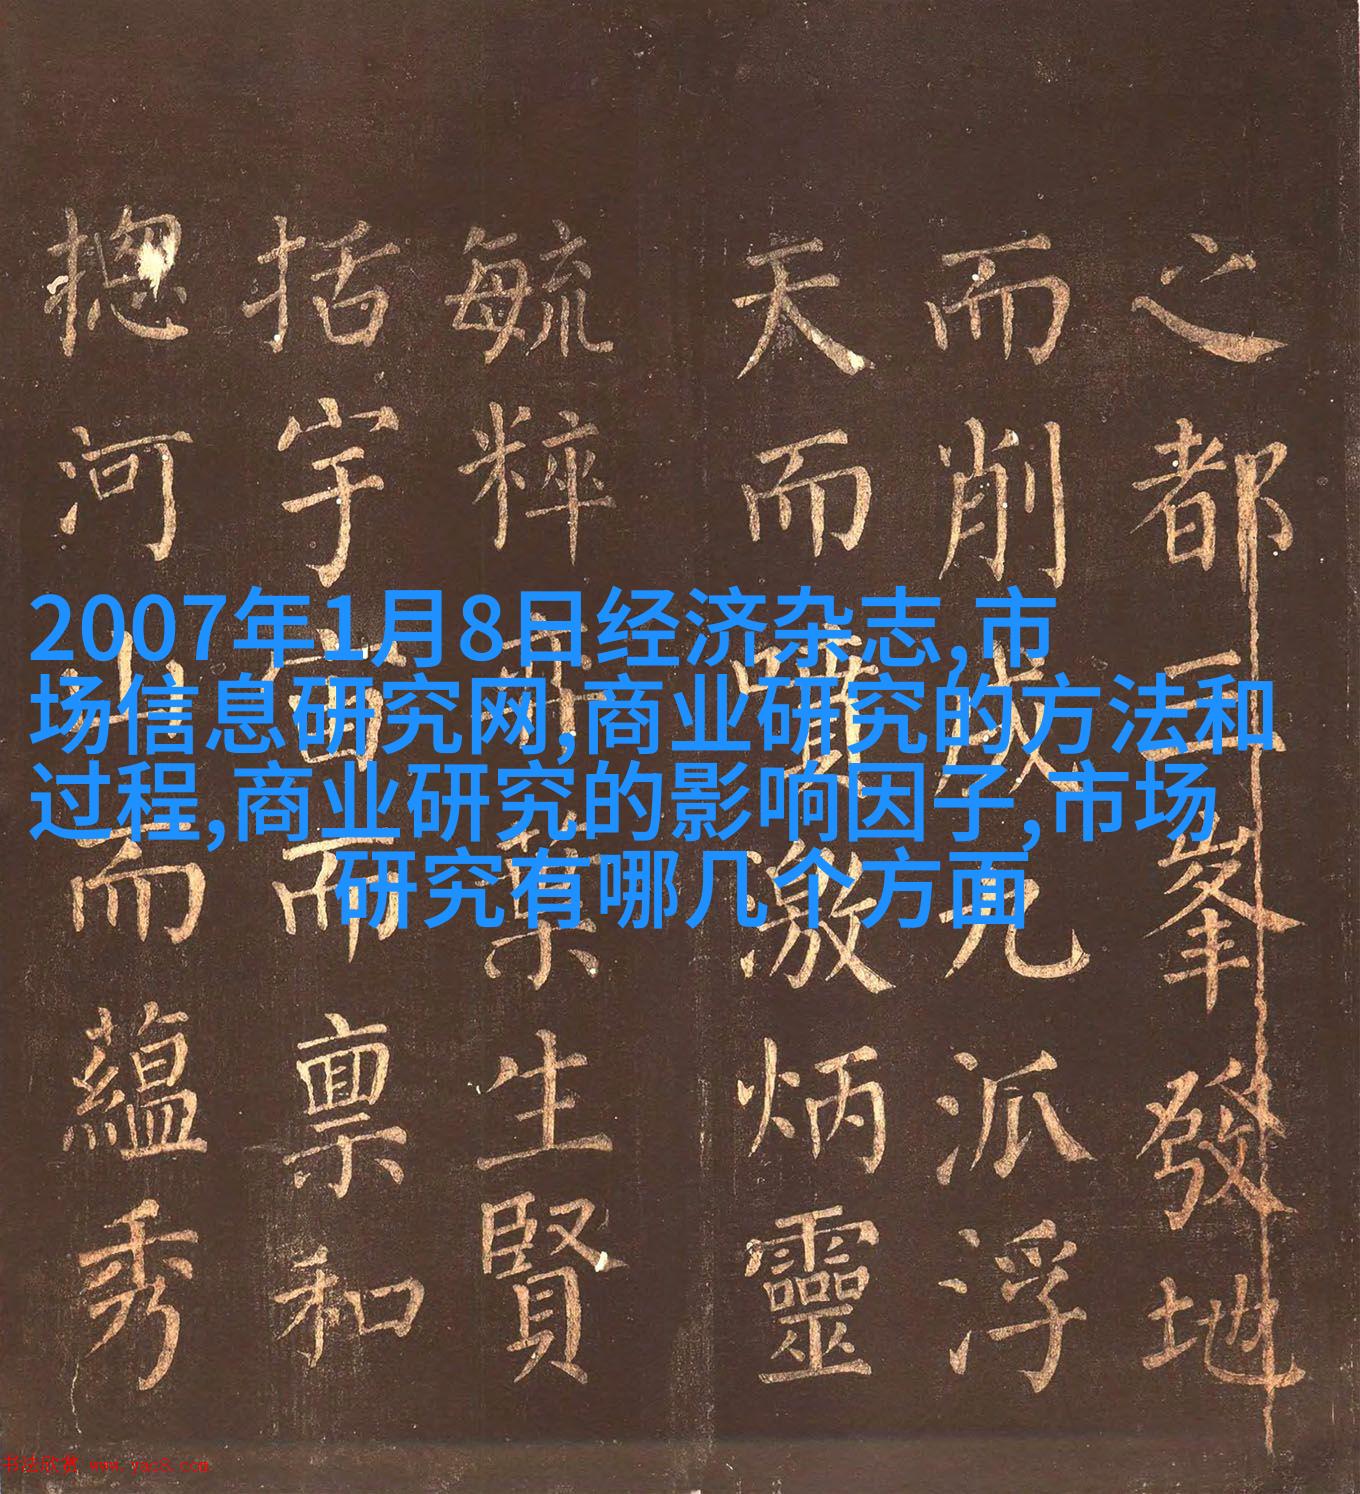 2007年1月8日经济杂志,市
场信息研究网,商业研究的方法和
过程,商业研究的影响因子,市场
研究有哪几个方面
之都五峯發地
而削成九派浮
天而噴激炳靈
毓粹葉生賢
括宇宙而禀和
揔河山而蘊秀
书法欣赏 www.yac8.com